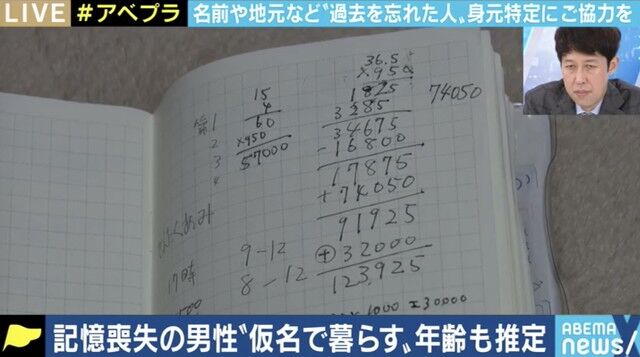 LIVE
#アベプラ
名前や地元など"過去を忘れた人"身元特定にご協力を
15
4
60
×950
57000
1
2
3
4
36.5
×950
1825
3285
34675
-16800
17875
+74050
91925
⊕32000
123,925
74050
17時
9-12
8-12
記憶喪失の男性"仮名で暮らす"年齢も推定
ABEMA
news